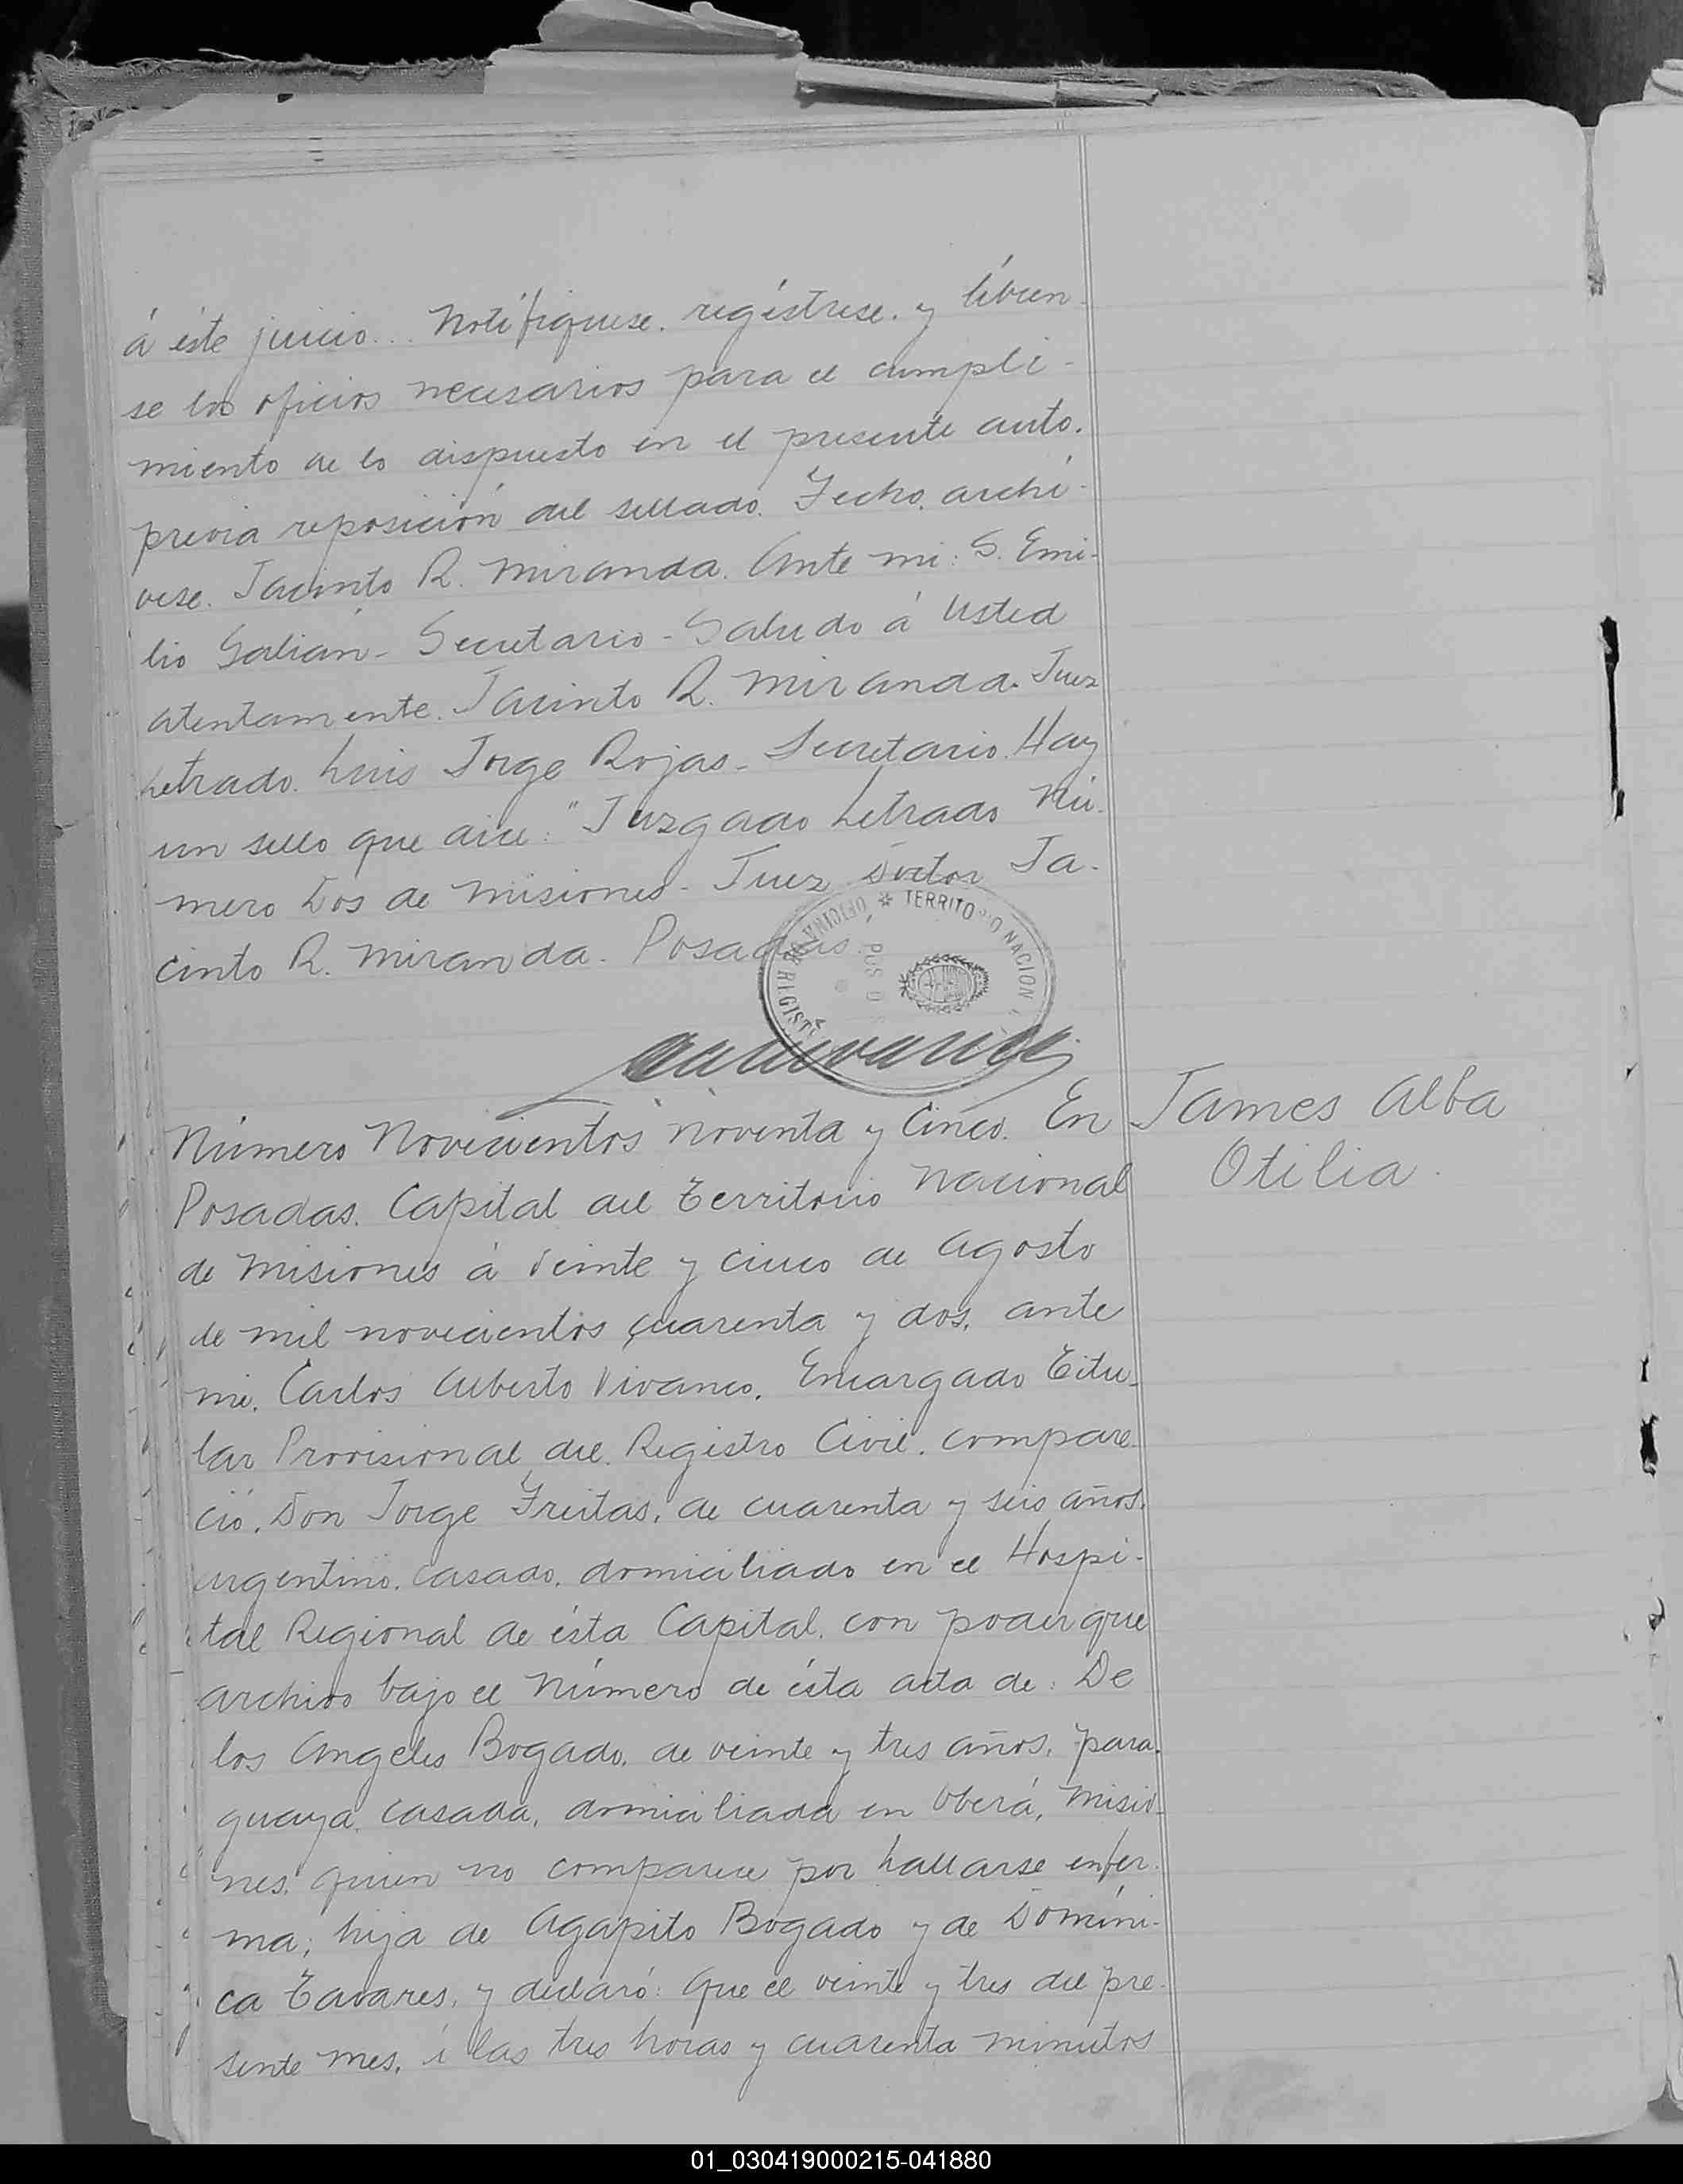 á éste juicio... Notifíquese. regístrese. y líbren-
se los oficios necesarios para el cumpli-
miento de lo dispuesto en el presente auto.
previa reposición del sellado. Fecho. archí-
vese. Jacinto R. Miranda. Ante mi: S. Emi-
lio Galian - Secretario - Saludo á Usted
atentamente. Jacinto R. Miranda. Juez
Letrado. Luis Jorge Rojas - Secretario. Hay
un sello que dice: "Juzgado Letrado Nú-
mero Dos de Misiones - Juez Doctor Ja-
cinto R. Miranda. Posadas
OFICINA DE REGIST * TERRITO IO NACION
Número Novecientos noventa y Cinco. En
James Alba
Otilia.
Posadas. Capital del Territorio Nacional
de Misiones á Veinte y cinco de Agosto
de mil novecientos cuarenta y dos, ante
mi. Carlos Alberto Vivanco. Encargado Titu-
lar Provisional del Registro Civil. compare-
ció. Don Jorge Freitas, de cuarenta y seis años.
argentino. casado. domiciliado en el Hospi-
tal Regional de ésta Capital. con poder que
archivo bajo el número de ésta acta de: De
los Angeles Bogado. de veinte y tres años, para-
guaya. casada, domiciliada en Oberá, Misio-
nes. quien no comparece por hallarse enfer-
ma; hija de Agapito Bogado y de Domíni-
ca Tavares, y declaró: Que el veinte y tres del pre-
sente mes, á las tres horas y cuarenta minutos
01_030419000215-041880